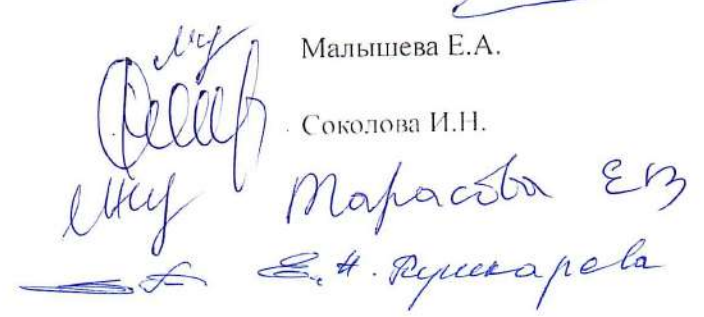 Малышева Е.А.
Соколова И.Н.
Тарасова ЕВ
Е.Н. Пушкарева